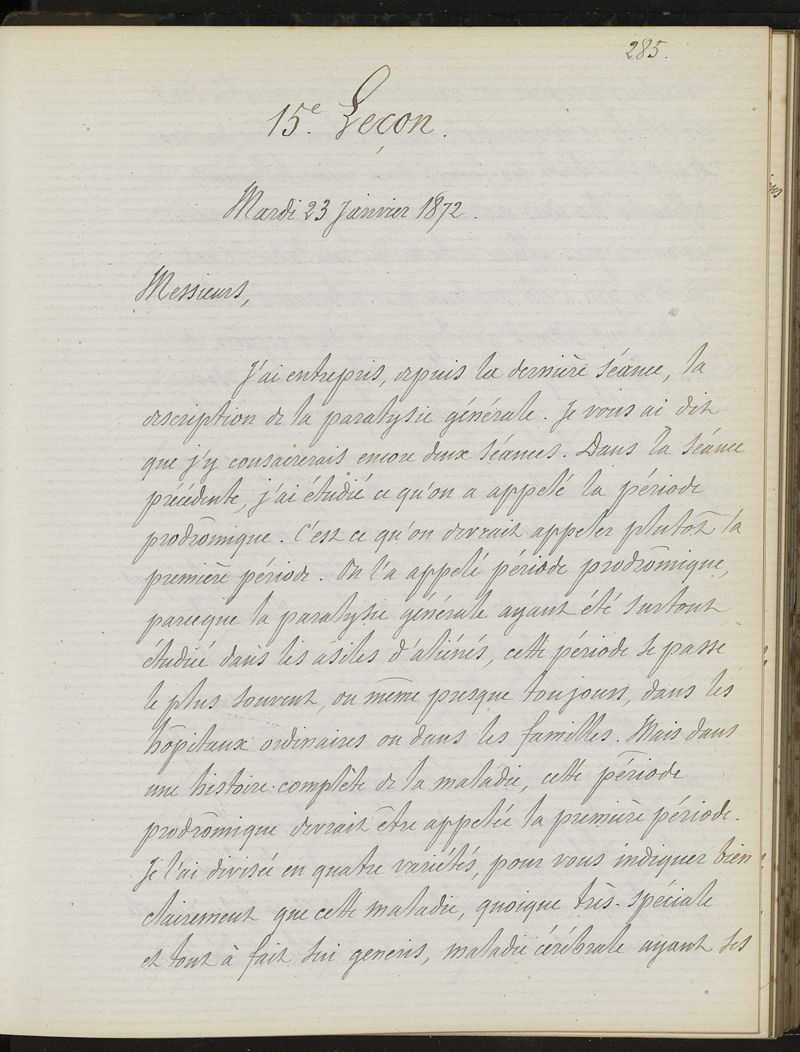 285.
15e. Leçon.
Mardi 23 Janvier 1872.
Messieurs,
J'ai entrepris, depuis la dernière séance, la
description de la paralysie générale. Je vous ai dit
que j'y consacrerais encore deux séances. Dans la séance
précédente, j'ai étudié ce qu'on a appelé la période
prodrômique. C'est ce qu'on devrait appeler plutôt la
première période. On l'a appelé période prodrômique,
parceque la paralysie générale ayant été surtout
étudiée dans les asiles d'aliénés, cette période se passe
le plus souvent, ou même presque toujours, dans les
hôpitaux ordinaires ou dans les familles. Mais dans
une histoire complète de la maladie, cette période
prodrômique devrait être appelée la première période.
Je l'ai divisée en quatre variétés, pour vous indiquer bien
clairement que cette maladie, quoique très-spéciale
et tout à fait sui generis, maladie cérébrale ayant ses